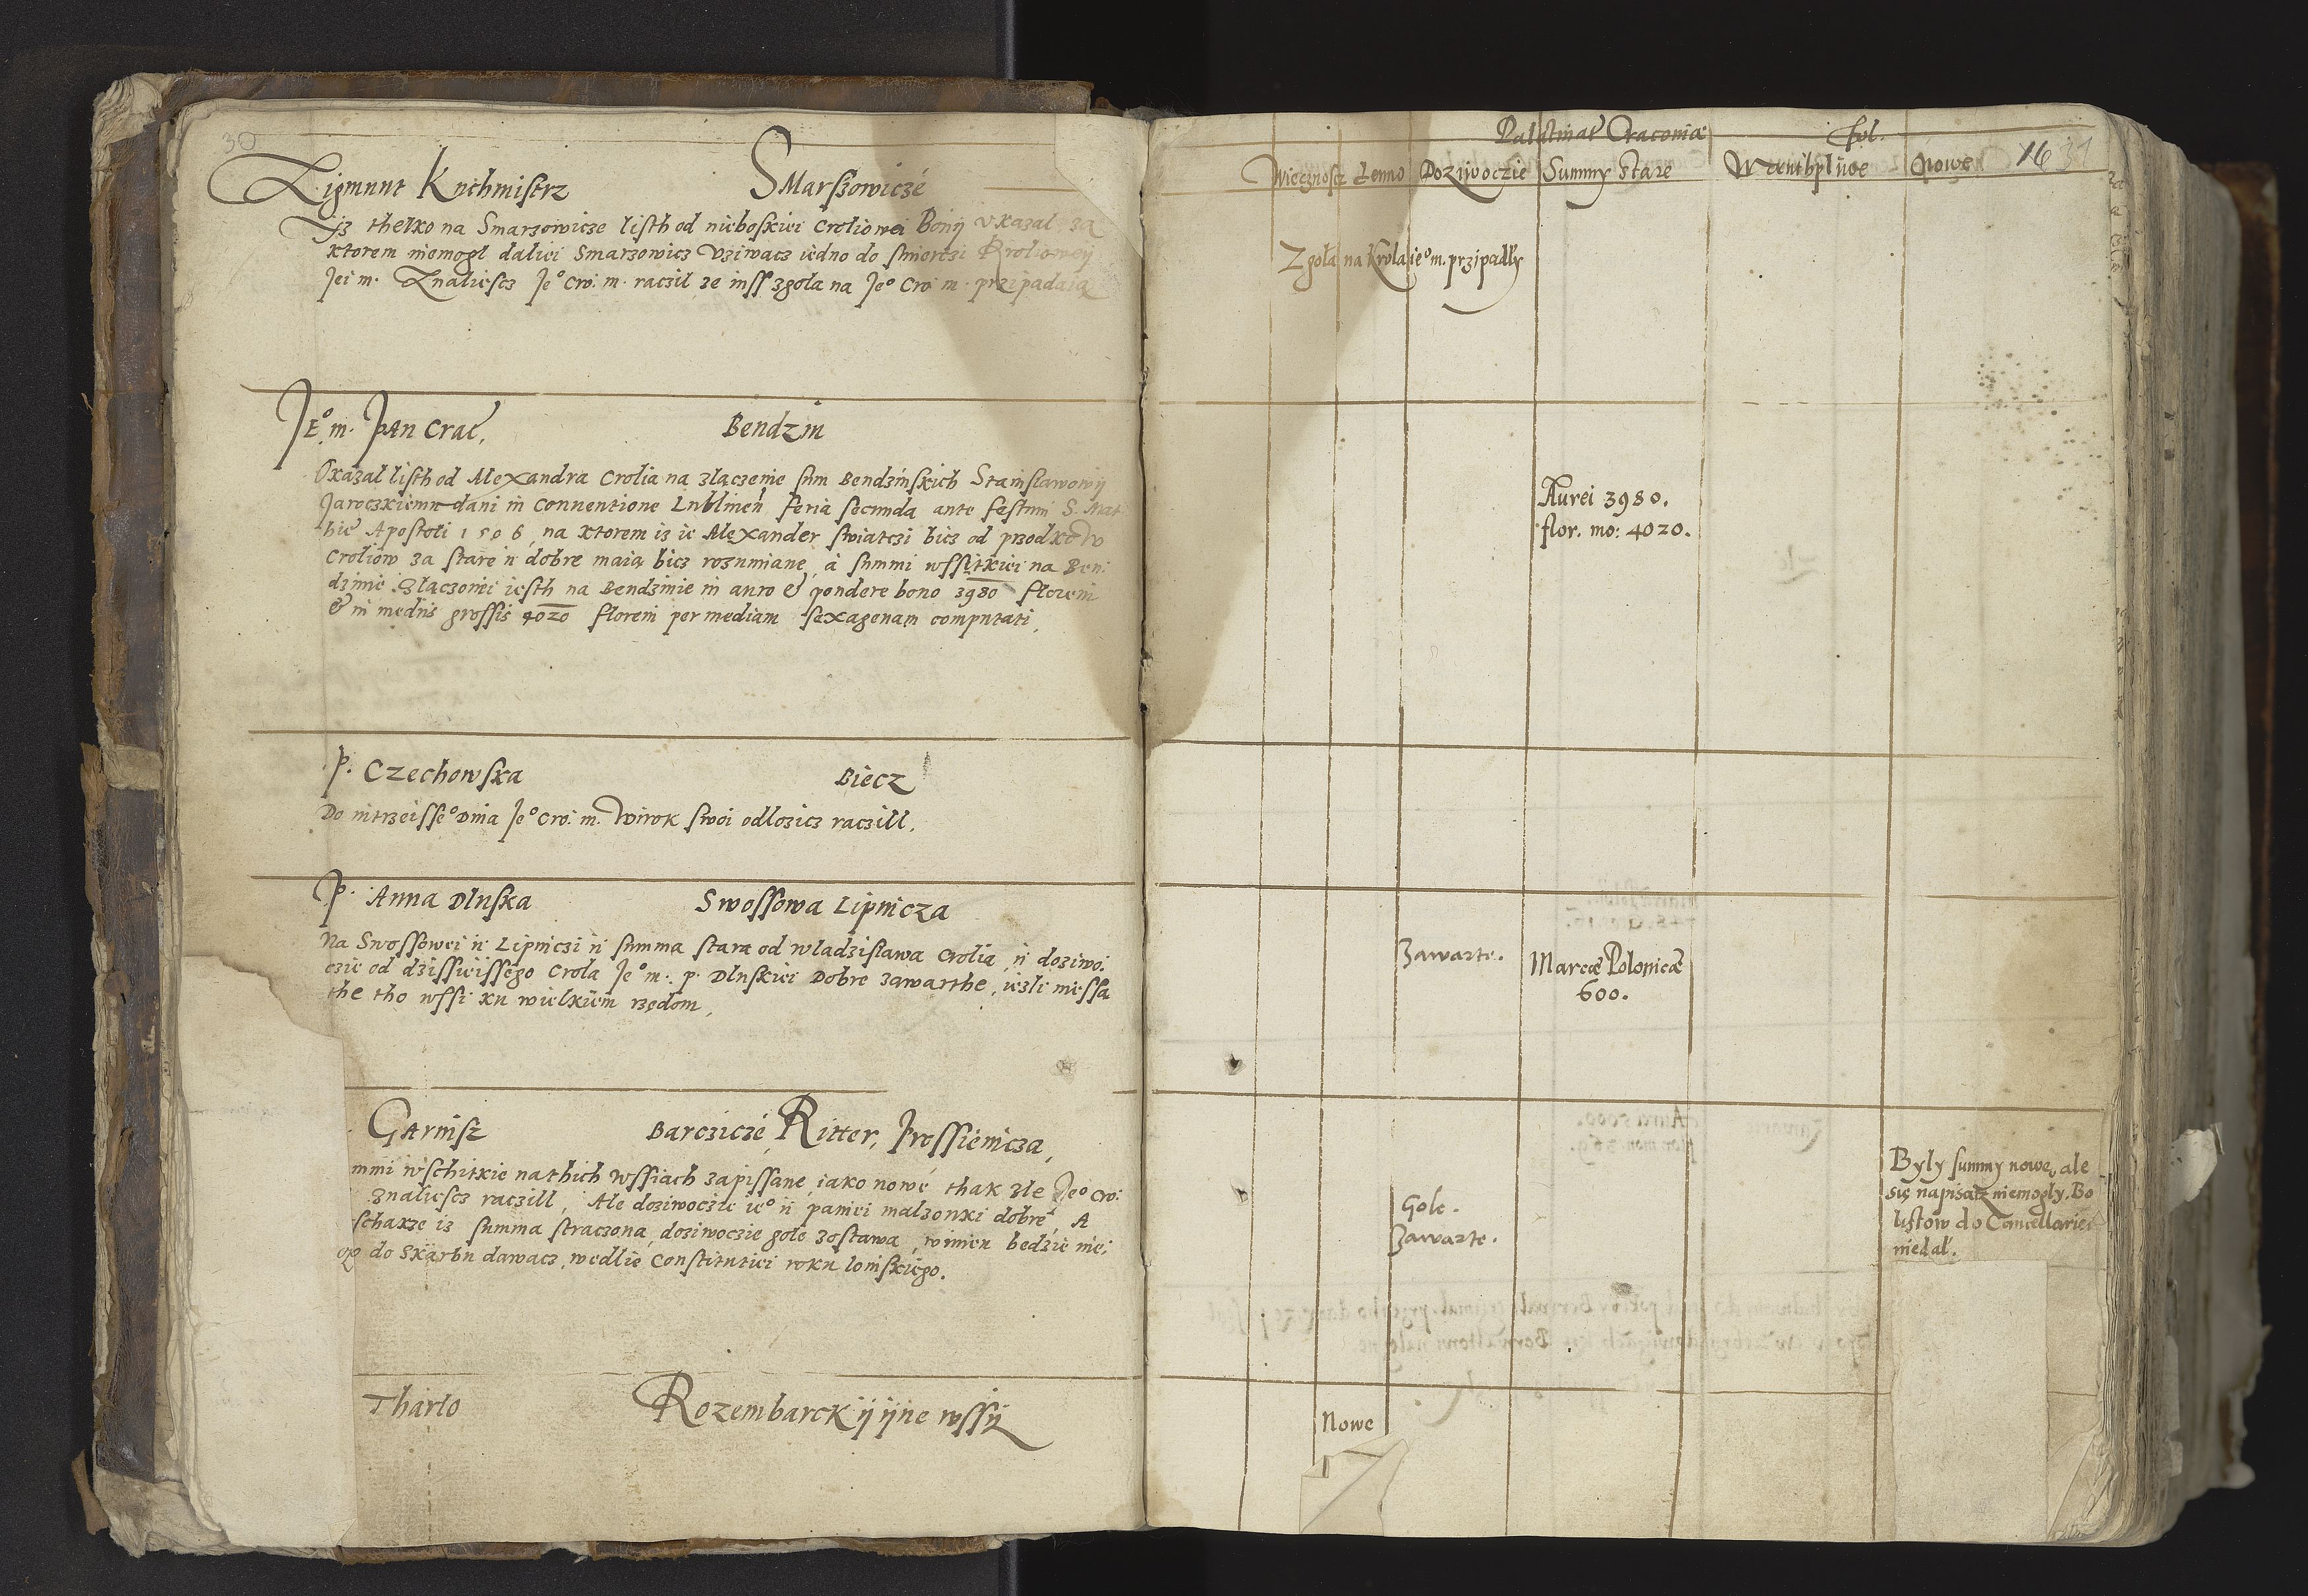 30
Zigmunt Kuchmistrz Smarszowiczé
Jż thelko na Smarzowicze listh od nieboskiei Croliowei Bony ukazal za
ktorem niemogl daliei Smarzowicz uziwacz iedno do smiertzi Kroliowey
Jei m. Znaliescz Jeº Cro: m. raczil ze inss zgola na Jeº Cro m. przipadaią
Jeº m. Pan Crac.
Bendzin
Okazal listh od Alexandra Crolia na zlaczenie sum Bendzinskich Stanislawowy
Jaroczkiemu dani in Conventione Lublinen feria secunda ante festum S. Mat
hie Apostoli 1506, na ktorem is ie Alexander swiatczi bicz od przodkow
Croliow za stare ii dobre maią bicz rozumiane, à summi wssitkiei na Ben
dzinie zlaczonei iesth na Bendzinie in auro & pondere bono 3980 floreni
& in mediis grossis 4020 floreni per mediam sexagenam computati.
P. Czechowska Biecz
Do iutrzeisseº dnia Jeº Cro: m. wirok swoi odlozicz raczill.
P. Anna Dluska Swossowa Lipnicza
Na Swossowei ii Lipniczi ii summa stara od wladzislawa Crolia, ii doziwo:
czie od dzissieissego Crola Jeº m: p. Dluskiei Dobre zawarthe, iezli niessa
the tho wssi ku wielkiem rzędom.
Garnisz Barcziczé, Ritter, Prossienicza,
mmi wschitkie na thich wssiach zapissane, iako nowé thak zle Jeº Cro:
znaliescz raczill, Ale doziwoczie ieº ii paniei malzonki dobre, A
schakze iz summa straczona, doziwoczie gole zostawa, winien bedzie niei
do Skarbu dawacz, wedlie Constitutiei roku lonskiego.
Tharlo Rozembarck ÿ ÿne wssÿ
Palatinat Craconiæ fol.
16 31
Wiecznosz Lenno Dozywoczie Summy Stare Wunthplyve Nowe
Zgoła na Krola ieº m. przipadły
Aurei 3980.
flor. mo: 4020.
Zawarte. Marcæ Polonicæ
600.
Gole.
Zawarte.
Były summy nowe, ale
się napisatz niemogły. Bo
listow do Cancellariei
niedał.
Nowe